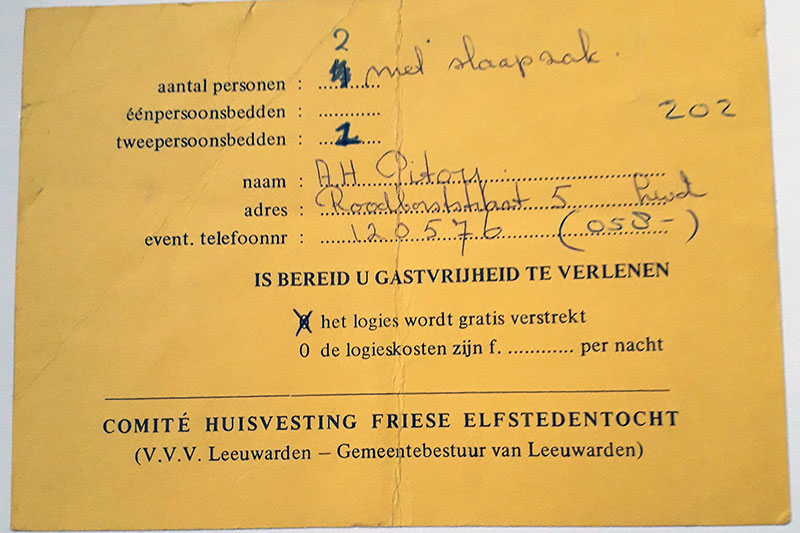 2
aantal personen : met slaapzak.
éénpersoonsbedden : ............
202
tweepersoonsbedden : 1
naam : A.H. Pitoy
adres : Roodborststraat 5 Lwd
event. telefoonnr : 120576 (058-)
IS BEREID U GASTVRIJHEID TE VERLENEN
0 het logies wordt gratis verstrekt
0 de logieskosten zijn f. ............ per nacht
COMITÉ HUISVESTING FRIESE ELFSTEDENTOCHT
(V.V.V. Leeuwarden – Gemeentebestuur van Leeuwarden)